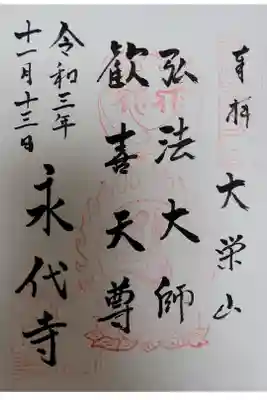 奉拝 大栄山
弘法大師
歓喜天尊
永代寺
令和三年
十一月十三日